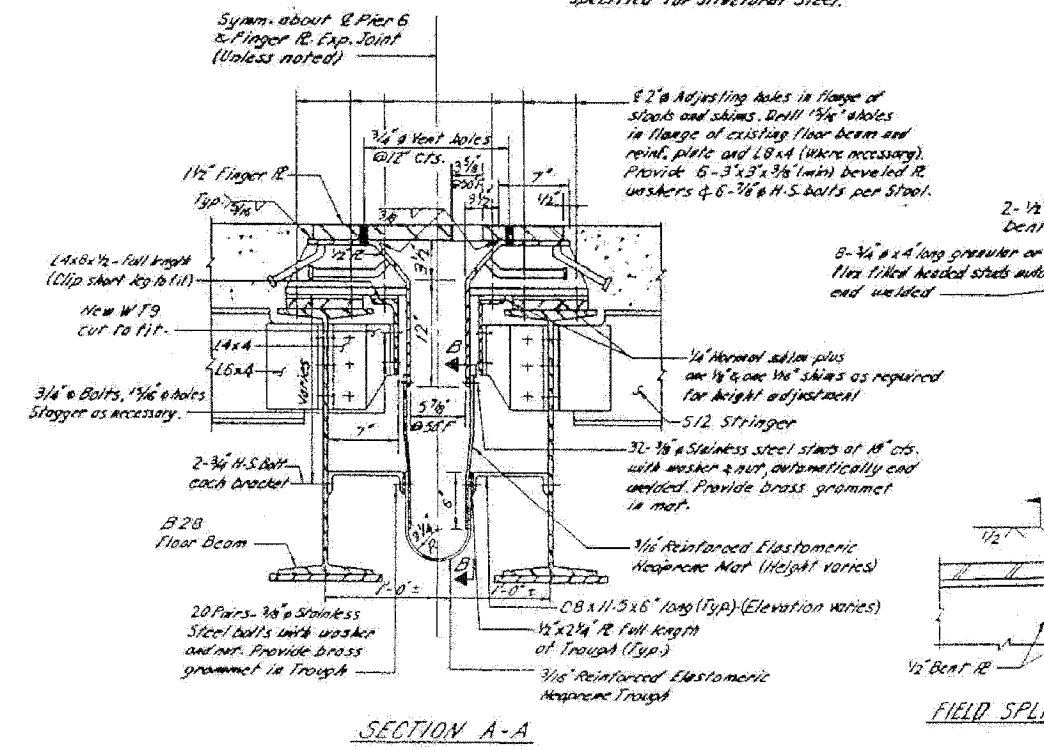 specified for Structural Steel.
Symm. about ℄ Pier 6
& Finger ℞. Exp. Joint
(Unless noted)
℄ 2" ø Adjusting holes in flange of
stools and shims. Drill 15/16" ø holes
in flange of existing floor beam and
reinf. plate and L8x4 (where necessary).
Provide 6-3"x3"x3/8" (min) beveled ℞
washers & 6-7/8" ø H.S. bolts per Stool.
3/4" ø Vent holes
@12" Cts.
1½" Finger ℞
Typ. 5/16
3/8
@50°F
3½"
7"
1/2"
1/2" ℞
3½"
L4x8x½-Full length
(Clip short leg to fit)
New WT9
cut to fit
L4x4
L6x4
3/4" ø Bolts, 15/16" ø holes
Stagger as necessary.
Varies
12"
B
5 7/8"
@50°F
7"
2-3/4" H.S. Bolt
each bracket
B28
Floor Beam
6"
3¼"
R.
B
1'-0" ±
1'-0" ±
20 Pairs-3/8" ø Stainless
Steel bolts with washer
and nut. Provide brass
grommet in Trough
1/4" Normal shim plus
one 1/8" & one 1/16" shims as required
for height adjustment
S12 Stringer
32-3/8" ø Stainless steel studs at 18" cts.
with washer & nut, automatically end
welded. Provide brass grommet
in mat.
3/16" Reinforced Elastomeric
Neoprene Mat (Height varies)
C8x11.5x6" long (Typ) (Elevation varies)
½"x2¼" ℞ full length
at Trough (Typ.)
3/16" Reinforced Elastomeric
Neoprene Trough
2-½
8-3/4" ø x 4" long granular or
flux filled headed studs auto
end welded
1/2
½" Bent ℞
FIELD SPL
SECTION A-A